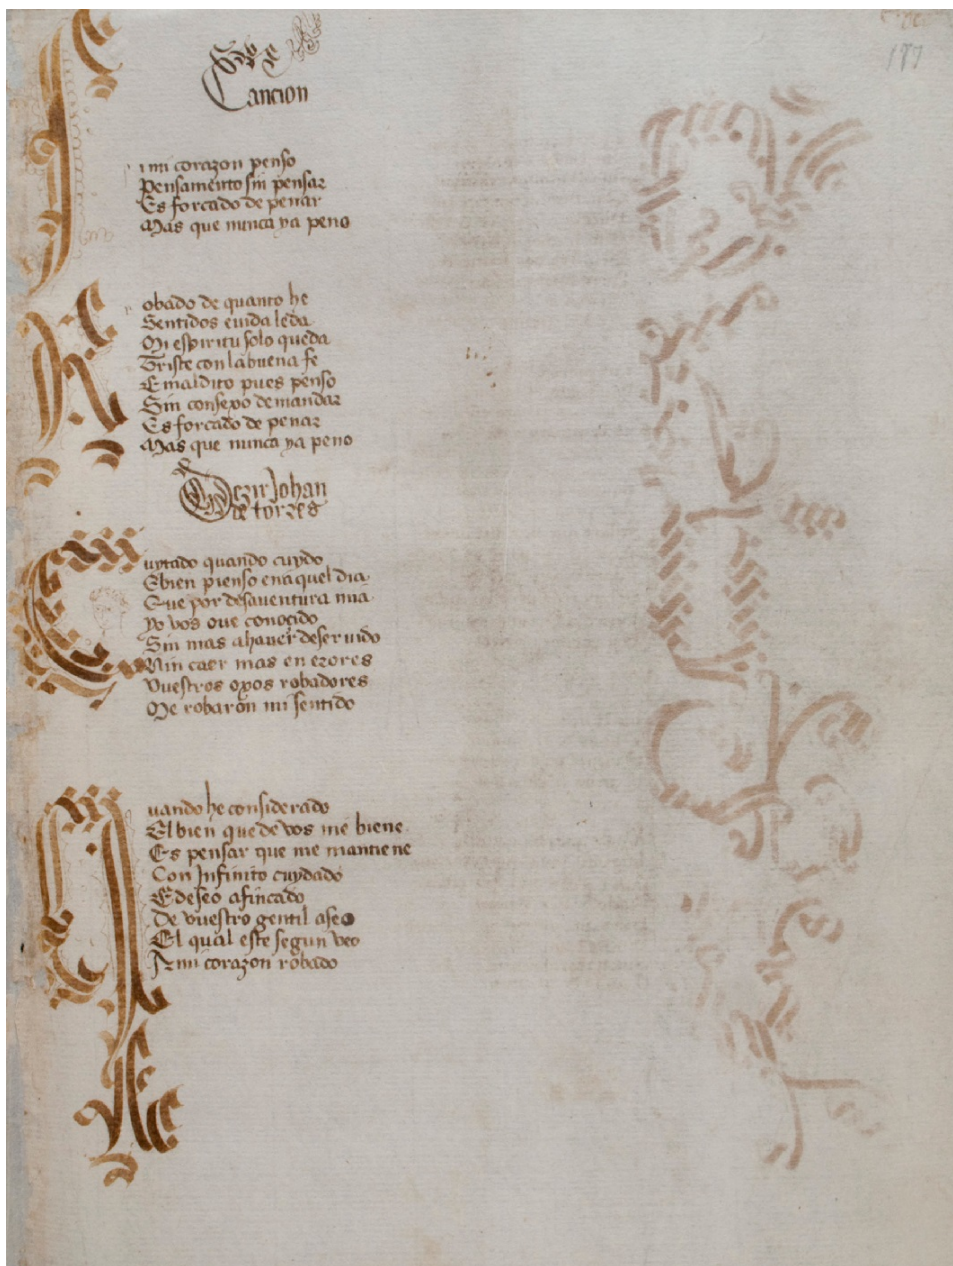 187
Cancion
i mi corazon penso
Pensamento sin pensar
Es forcado de penar
Mas que nunca ya peno
Robado de quanto he
Sentidos e vida leda
Mi espiritu solo queda
Triste con la buena fe
E maldito pues penso
Sin consexo demandar
Es forcado de penar
Mas que nunca ya peno
Dezir Johan
de torres
Cuytado quando cuydo
E bien pienso en aquel dia
Que por desauentura mia
Yo vos oue conoçido
Sin mas a hauer deseruido
Nin caer mas en erores
Vuestros oxos robadores
Me robaron mi sentido
Quando he considerado
El bien que de vos me biene
Es pensar que me mantiene
Con Infinito cuydado
E deseo afincado
De vuestro gentil aseo
El qual este segun veo
A mi corazon robado